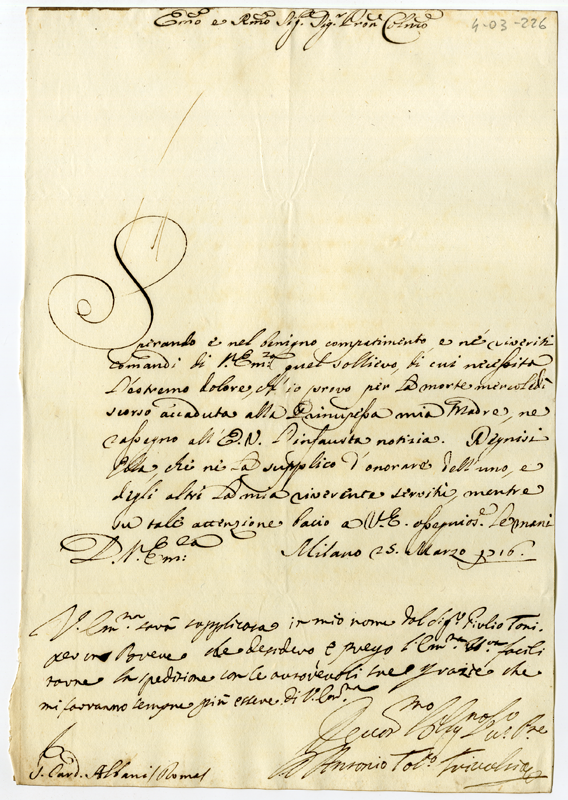 Emo e Rmo Sig.r Sig.r Pron Colmo
4-03-226
Sperando e nel benigno compatimento e ne' riveriti
comandi di V. Em.za quel sollievo, di cui necessita
l'estremo dolore, ch' io provo per la morte mercoledì
scorso accaduta alla Principessa mia Madre, ne
rassegno all' E.V. l'infausta notizia. Degnisi
Ella, che ne la supplico d'onorare dell' uno, e
degli altri la mia riverente servitù, mentre
su tale attenzione bacio a V.E. ossequios.e le mani
D. V. Em.za Milano 25. Marzo 1716.
V. Em.za sarà supplicata in mio nome dal Sig.r Giulio
che desidero e prego l'Em.za Sua facili
tarne la spedizione con le autorevoli sue grazie che
mi faranno sempre più essere di V. Em.za
Antonio Tol.o Trivulzio
S. Card. Albani Roma